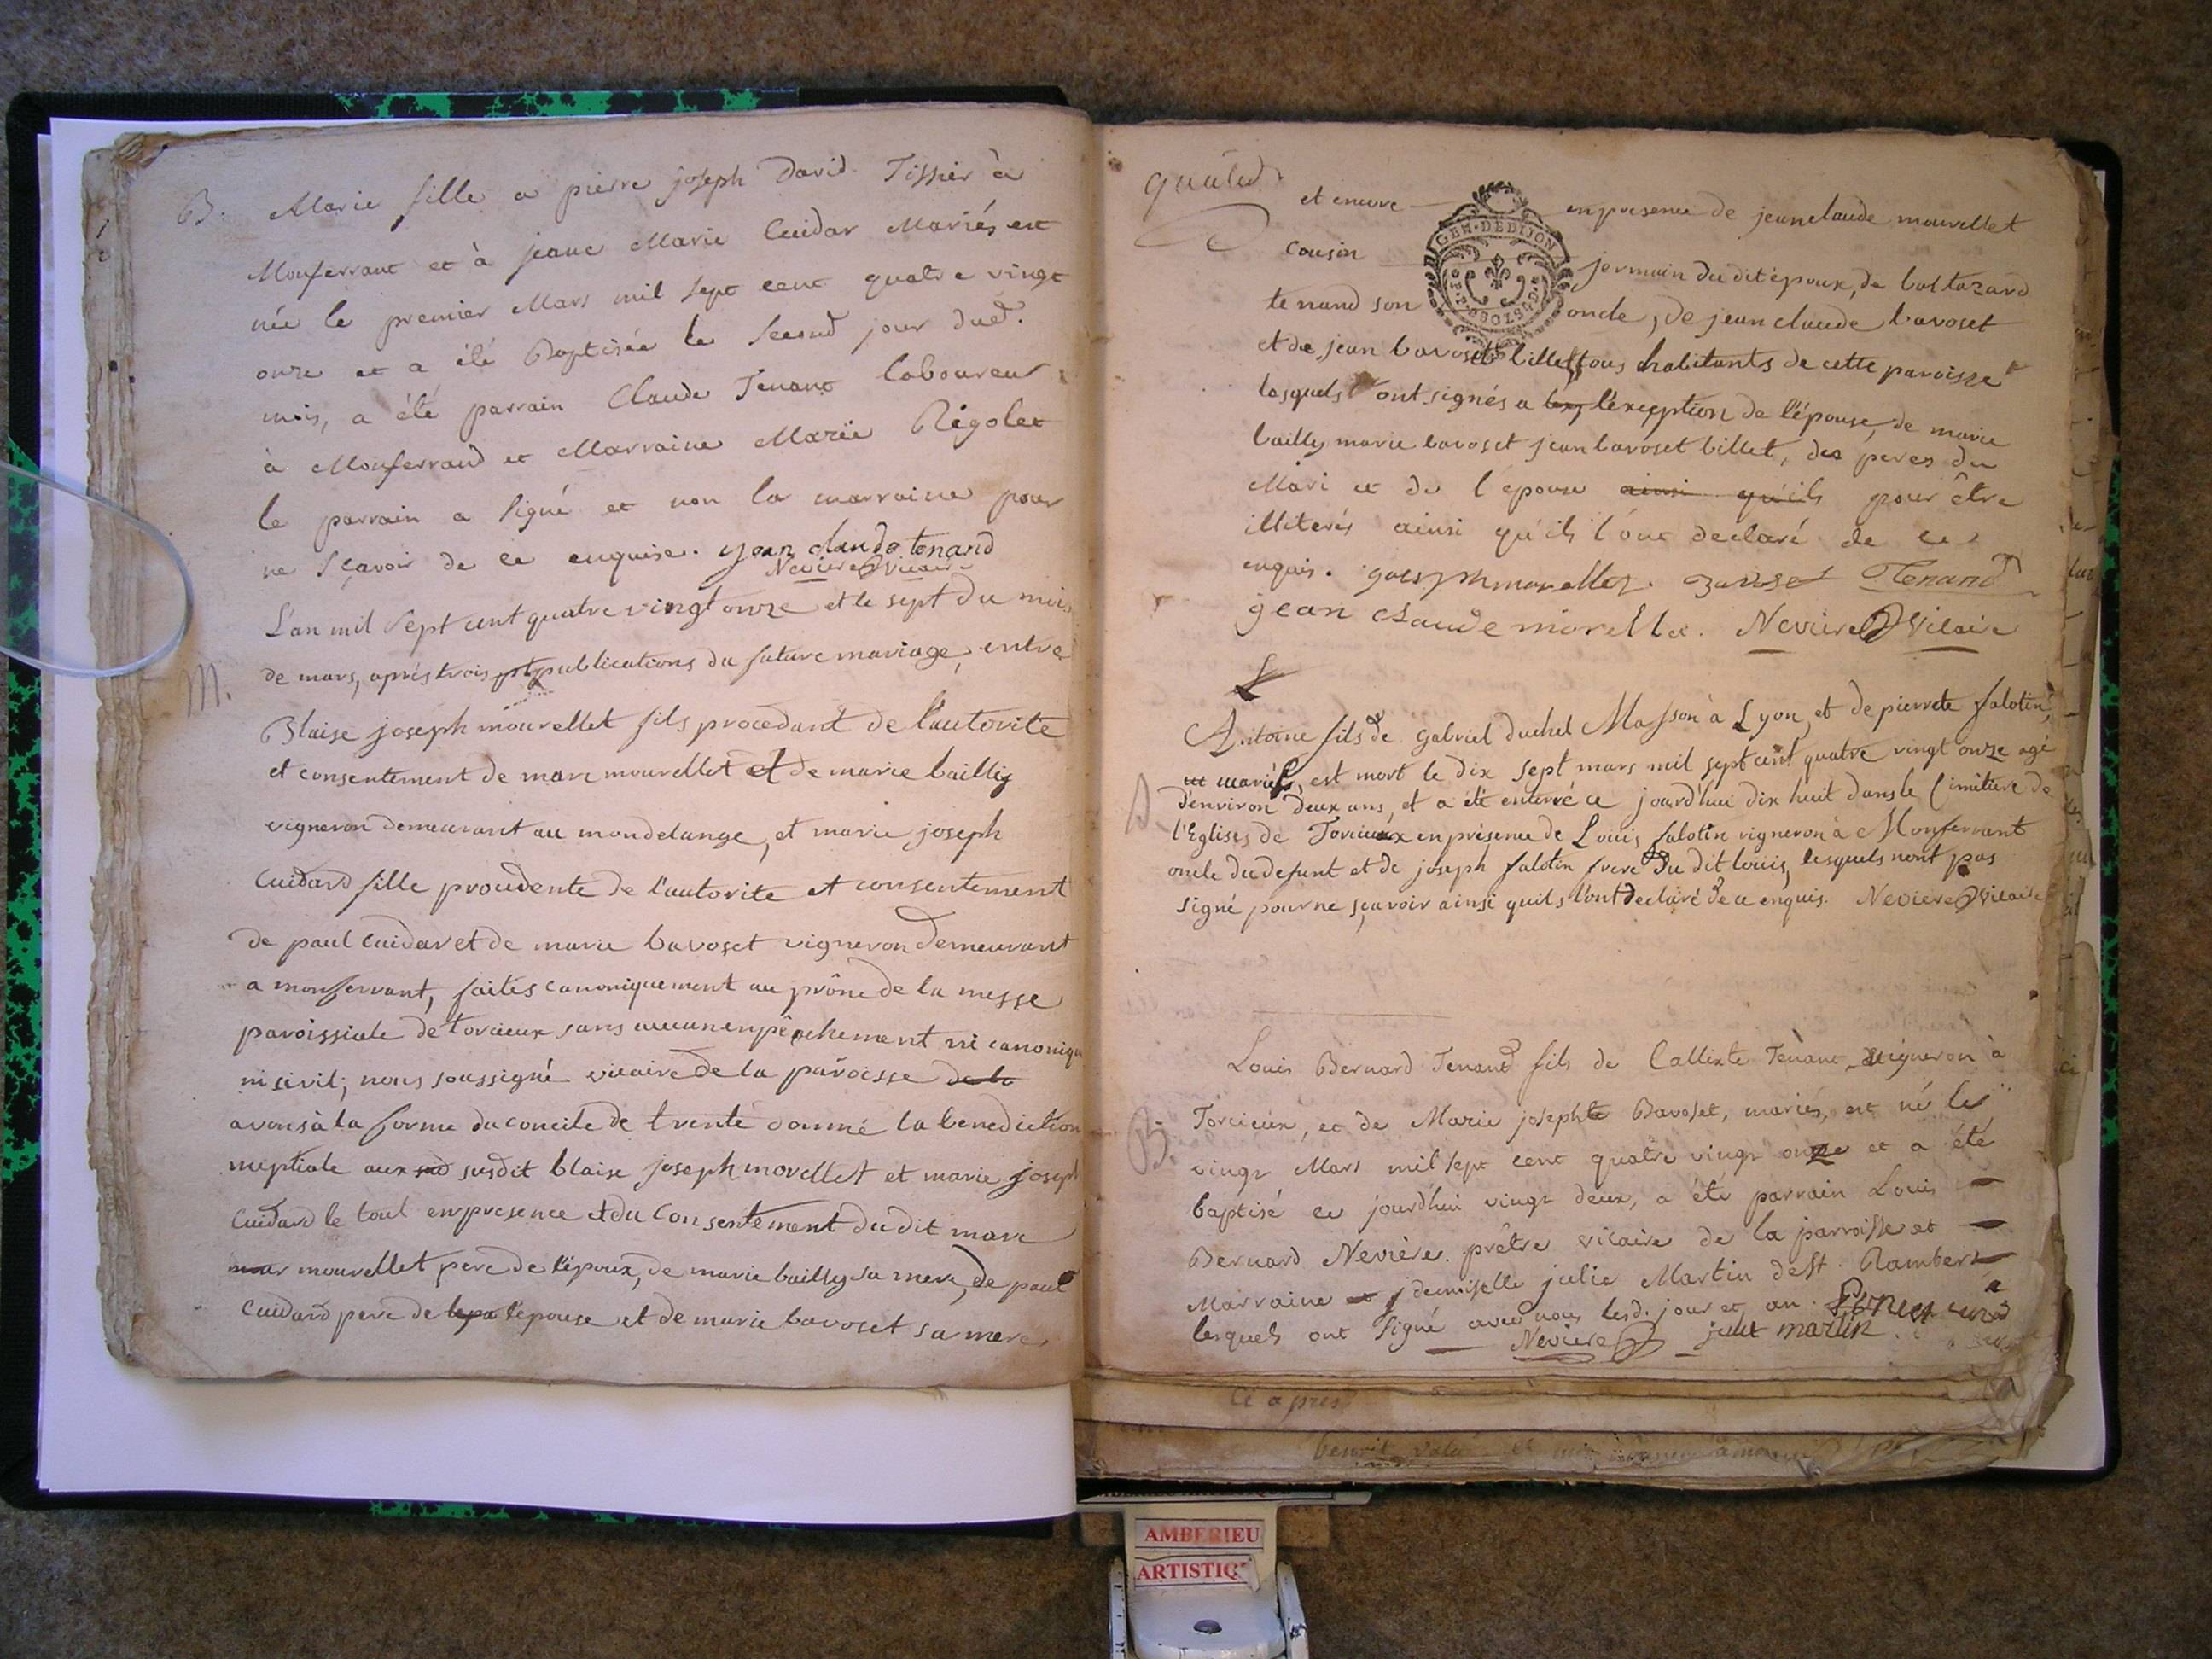 B. Marie fille a pierre joseph David Tissier à
Monferrant et à jeane Marie Cuidar Mariés est
née le premier Mars mil sept cent quatre vingt
onze et a été Baptisée le second jour dud.
mois, a été parrain Claude Tenant laboureur
à Monferrand et Marraine Marie Rigolet
le parrain a signé et non la marraine pour
ne sçavoir de ce enquise. jean claude tenand
Neviere Vicaire
L'an mil sept cent quatre vingt onze et le sept du mois
M. de mars, aprés trois publications du future mariage, entre
Blaise joseph mourellet fils procedant de l'autorite
et consentement de marc mourellet et de marie bailly
vigneron demeurant au mondelange, et marie joseph
Cuidard fille procedente de l'autorite et consentement
de paul cuidar et de marie bavoset vigneron demeurant
a monferrant, faites canoniquement au prône de la messe
paroissiale de torcieux sans aucun enpêchement ni canoniqu
ni sivil; nous soussigné vicaire de la paroisse de la
avons à la forme du concile de trente donné la benediction
nuptiale aux sus dit blaise joseph morellet et marie joseph
Cuidard le tout en presence et du consentement du dit marc
mar mourellet pere de l'époux, de marie bailly sa mere, de paul
Cuidard pere de l'épouse et de marie bavoset sa mere,
et encore en presence de jean claude mourellet
GEN. DE DIJON
cousin jermain du dit époux, de baltazard
tenand son oncle, de jean claude bavoset
et de jean bavoset billet tous habitants de cette paroisse
lesquels ont signés a l'éxception de l'épouse, de marie
bailly marie bavoset jean bavoset billet, des peres du
Mari et de l'épouse ainsi qu'ils pour être
illiterés ainsi qu'ils l'ont declaré de ce
enquis. Tenand
jean Claude morellet. Neviere Vicaire
Antoine fils de Gabriel duchel Masson à Lyon, et de pierrete falotin,
mariés, est mort le dix sept mars mil sept cent quatre vingt onze agé
d'environ deux ans, et a été enterré ce jourd'hui dix huit dans le Cimétiere de
l'Eglises de Torcieux en présence de Louis falotin vigneron à Monferrant
oncle du defunt et de joseph falotin frere du dit louis, lesquels nont pas
signé pour ne sçavoir ainsi quils l'ont declaré de ce enquis. Neviere Vicaire
Louis Bernard Tenand fils de Callixte Tenant, vigneron à
B. Torcieux, et de Marie josephte Bavoset, mariés, est né le
vingt Mars mil sept cent quatre vingt onze et a été
baptisé ce jourd'hui vingt deux, a été parrain Louis
Bernard Nevière prêtre vicaire de la parroisse et
Marraine demoiselle julie Martin de St. Rambert
lesquels ont signé avec nous lesd. jour et an.
Neviere julie martin
Ci apres
AMBERIEU
ARTISTIQ